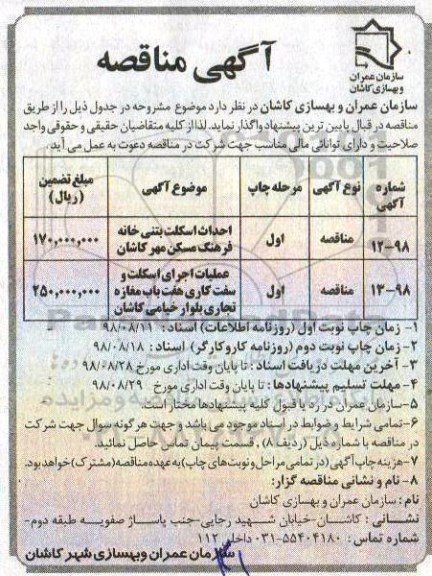 سازمان عمران
و بهسازی کاشان
آگهی مناقصه
سازمان عمران و بهسازی کاشان در نظر دارد موضوع مشروحه در جدول ذیل را از طریق
مناقصه در قبال پایین ترین پیشنهاد واگذار نماید. لذا از کلیه متقاضیان حقیقی و حقوقی واجد
صلاحیت و دارای توانائی مالی مناسب جهت شرکت در مناقصه دعوت به عمل می آید.
شماره آگهی نوع آگهی مرحله چاپ موضوع آگهی مبلغ تضمین (ریال)
۱۲-۹۸ مناقصه اول احداث اسکلت بتنی خانه فرهنگ مسکن مهر کاشان ۱۷۰,۰۰۰,۰۰۰
۱۳-۹۸ مناقصه اول عملیات اجرای اسکلت و سفت کاری هفت باب مغازه تجاری بلوار خیامی کاشان ۲۵۰,۰۰۰,۰۰۰
۱- زمان چاپ نوبت اول (روزنامه اطلاعات) اسناد: ۹۸/۰۸/۱۱
۲- زمان چاپ نوبت دوم (روزنامه کار و کارگر) اسناد: ۹۸/۰۸/۱۸
۳- آخرین مهلت دریافت اسناد: تا پایان وقت اداری مورخ ۹۸/۰۸/۲۸
۴- مهلت تسلیم پیشنهادها: تا پایان وقت اداری مورخ ۹۸/۰۸/۲۹
۵- سازمان عمران در رد یا قبول کلیه پیشنهادها مختار است.
۶- تمامی شرایط و ضوابط در اسناد موجود می باشد و جهت هر گونه سوال جهت شرکت
در مناقصه با شماره ذیل (ردیف ۸) , قسمت پیمان تماس حاصل نمائید.
۷- هزینه چاپ آگهی (در تمامی مراحل و نوبت های چاپ) به عهده مناقصه (مشترک) خواهد بود.
۸- نام و نشانی مناقصه گزار:
نام: سازمان عمران و بهسازی کاشان
نشانی: کاشان-خیابان شهید رجایی-جنب پاساژ صفویه طبقه دوم-
شماره تماس: ۵۵۴۰۴۱۸۰-۰۳۱ داخلی ۱۱۲
سازمان عمران وبهسازی شهر کاشان